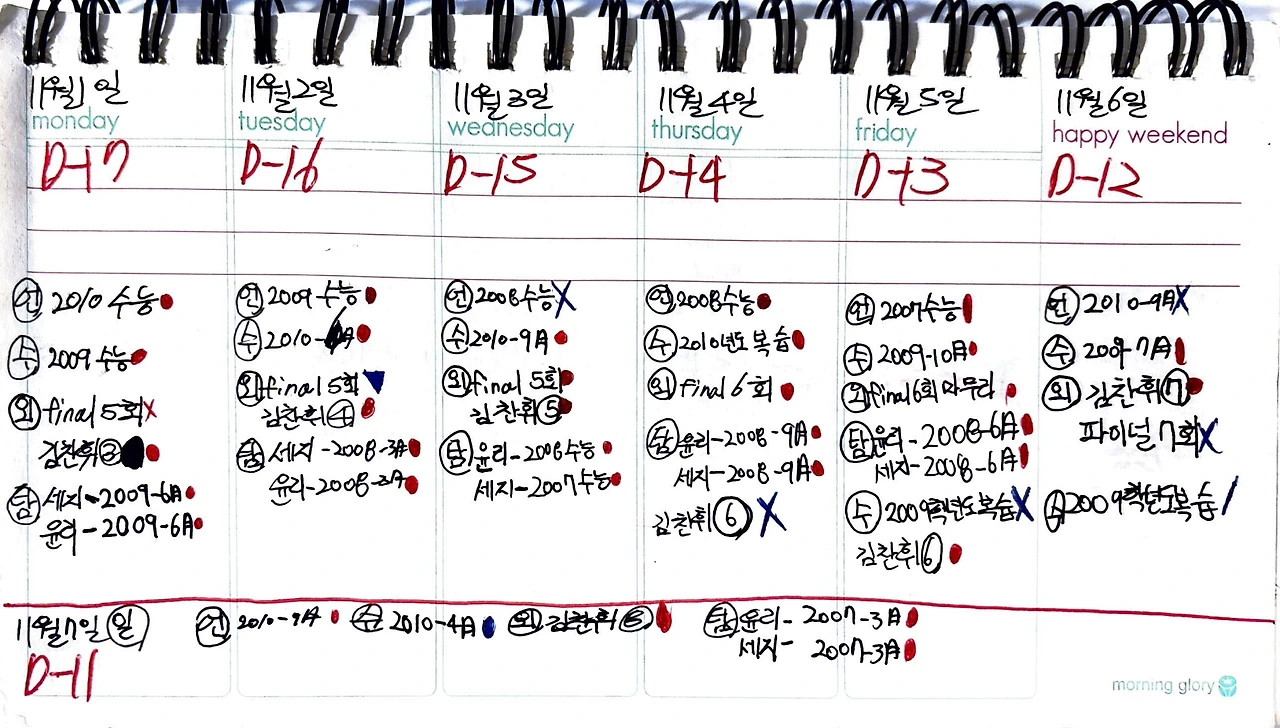 11월 1일
monday
D-17
언 2010 수능
수 2009 수능
외 final 5회 X
김찬휘 ③
탐 세지-2009-6月
윤리-2009-6月
11월 2일
tuesday
D-16
언 2009 수능
수 2010-月
외 final 5회
김찬휘 ④
탐 세지-2008-3月
윤리-2008-3月
11월 3일
wednesday
D-15
언 2008수능 X
수 2010-9月
외 final 5회
김찬휘 ⑤
탐 윤리-2008수능
세지-2007수능
11월 4일
thursday
D-14
언 2008수능
수 2010년도 복습
외 final 6회
탐 윤리-2008-9月
세지-2008-9月
김찬휘 ⑥ X
11월 5일
friday
D-13
언 2007수능
수 2009-10月
외 final 6회 마무리
탐 윤리-2008-6月
세지-2008-6月
수 2009학년도복습 X
김찬휘 ⑥
11월 6일
happy weekend
D-12
언 2010-9月 X
수 2009-7月
외 김찬휘 ⑦
파이널 7회 X
수 2009학년도복습 /
11월 7일 일
D-11
언 2010-9月 수 2010-4月 외 김찬휘 ⑧ 탐 윤리-2007-3月
세지-2007-3月
morning glory